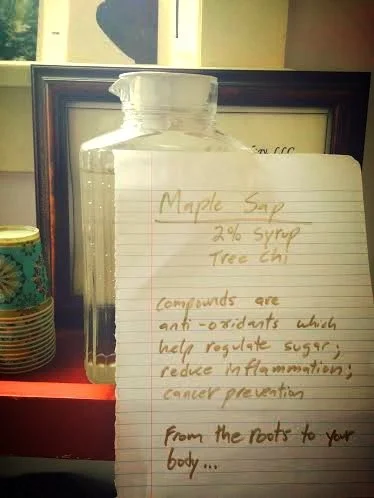 Maple Sap
2% Syrup
Tree Chi
compounds are
anti-oxidants which
help regulate sugar;
reduce inflammation;
cancer prevention
From the roots to your
body...